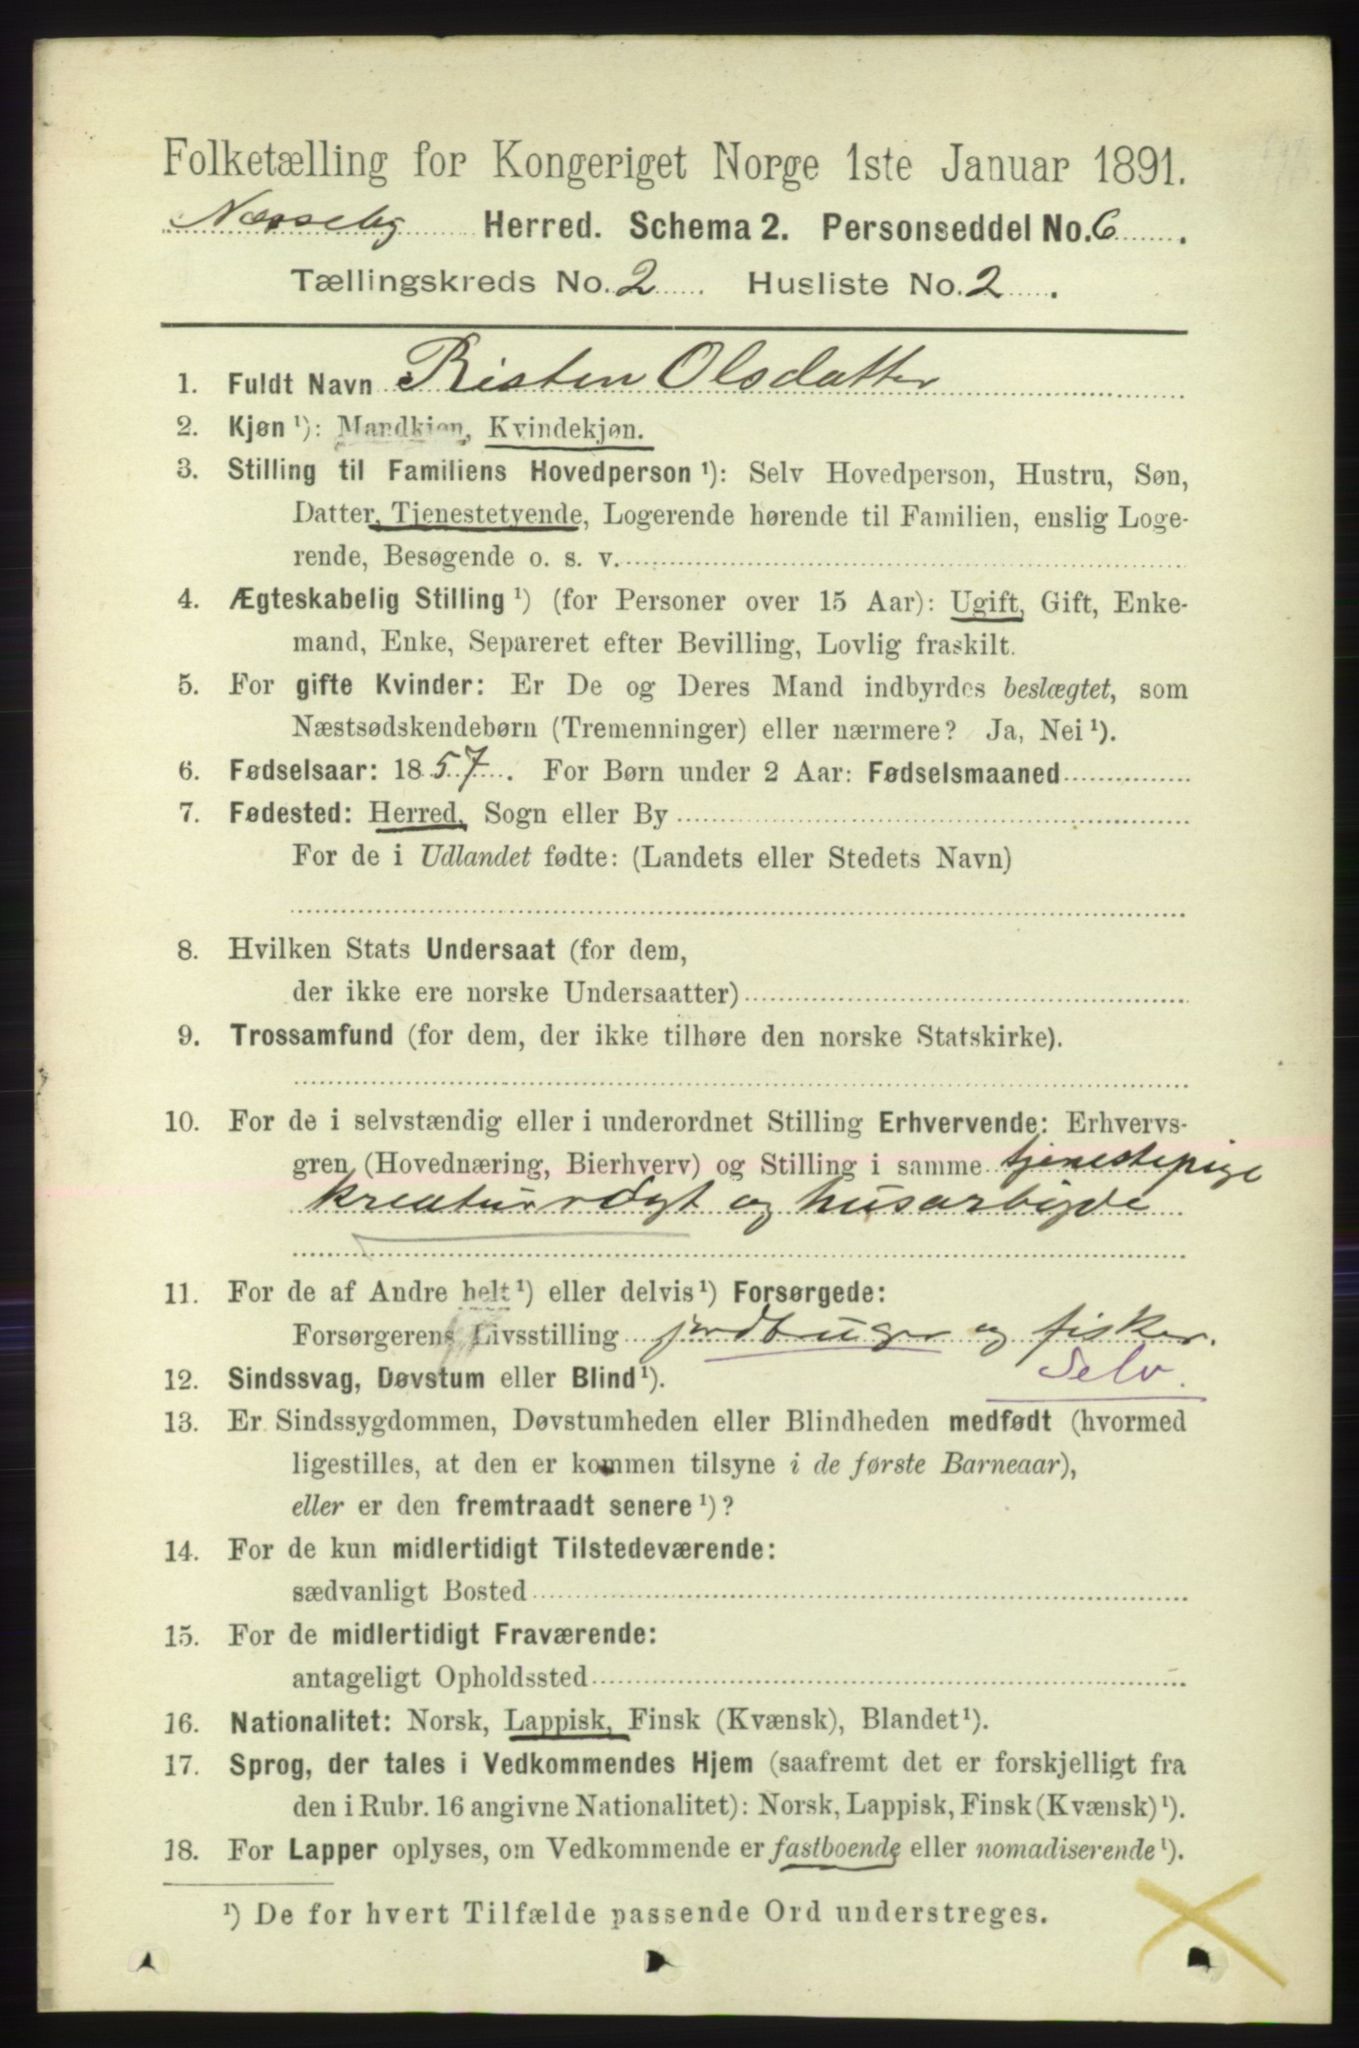 Folketælling for Kongeriget Norge 1ste Januar 1891.
Næsseby Herred. Schema 2. Personseddel No. 6.
Tællingskreds No. 2. Husliste No. 2.
1. Fuldt Navn Risten Olsdatter
2. Kjøn ¹): Mandkjøn, Kvindekjøn.
3. Stilling til Familiens Hovedperson ¹): Selv Hovedperson, Hustru, Søn,
Datter, Tjenestetyende, Logerende hørende til Familien, enslig Loge-
rende, Besøgende o. s. v.
4. Ægteskabelig Stilling ¹) (for Personer over 15 Aar): Ugift, Gift, Enke-
mand, Enke, Separeret efter Bevilling, Lovlig fraskilt.
5. For gifte Kvinder: Er De og Deres Mand indbyrdes beslægtet, som
Næstsødskendebørn (Tremenninger) eller nærmere? Ja, Nei ¹).
6. Fødselsaar: 1857. For Børn under 2 Aar: Fødselsmaaned
7. Fødested: Herred, Sogn eller By
For de i Udlandet fødte: (Landets eller Stedets Navn)
8. Hvilken Stats Undersaat (for dem,
der ikke ere norske Undersaatter)
9. Trossamfund (for dem, der ikke tilhøre den norske Statskirke).
10. For de i selvstændig eller i underordnet Stilling Erhvervende: Erhvervs-
gren (Hovednæring, Bierhverv) og Stilling i samme tjenestepige
kreaturrögt og husarbigde
11. For de af Andre helt ¹) eller delvis ¹) Forsørgede:
Forsørgerens Livsstilling jordbruger og fisker.
Selv.
12. Sindssvag, Døvstum eller Blind ¹).
13. Er Sindssygdommen, Døvstumheden eller Blindheden medfødt (hvormed
ligestilles, at den er kommen tilsyne i de første Barneaar),
eller er den fremtraadt senere ¹)?
14. For de kun midlertidigt Tilstedeværende:
sædvanligt Bosted
15. For de midlertidigt Fraværende:
antageligt Opholdssted
16. Nationalitet: Norsk, Lappisk, Finsk (Kvænsk), Blandet ¹).
17. Sprog, der tales i Vedkommendes Hjem (saafremt det er forskjelligt fra
den i Rubr. 16 angivne Nationalitet): Norsk, Lappisk, Finsk (Kvænsk) ¹).
18. For Lapper oplyses, om Vedkommende er fastboende eller nomadiserende ¹).
¹) De for hvert Tilfælde passende Ord understreges.